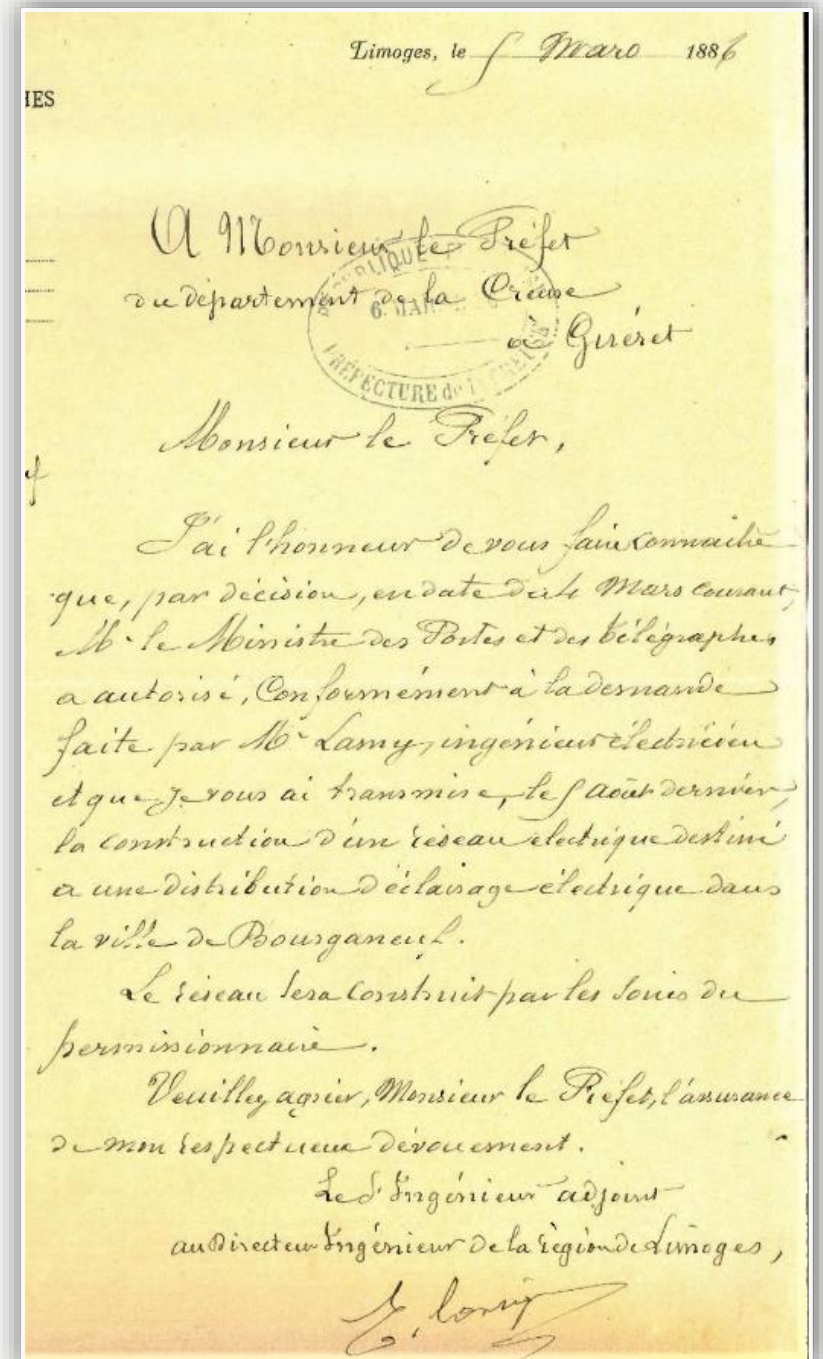 Limoges, le 5 Mars 1886
HES
A Monsieur le Préfet
du département de la Creuse
à Guéret
RÉPUBLIQUE
6 MAR
PRÉFECTURE de la CREUSE
Monsieur le Préfet,
J'ai l'honneur de vous faire connaître
que, par décision, en date du 4 Mars courant,
Mr le Ministre des Postes et des télégraphes
a autorisé, Conformément à la demande
faite par Mr Lamy, ingénieur électricien
et que je vous ai transmise, le 5 Août dernier,
la construction d'un réseau électrique destiné
a une distribution d'éclairage électrique dans
la ville de Bourganeuf.
Le réseau sera construit par les soins du
permissionnaire.
Veuillez agréer, Monsieur le Préfet, l'assurance
de mon respectueux dévouement.
Le Ingénieur adjoint
au Directeur Ingénieur de la région de Limoges,